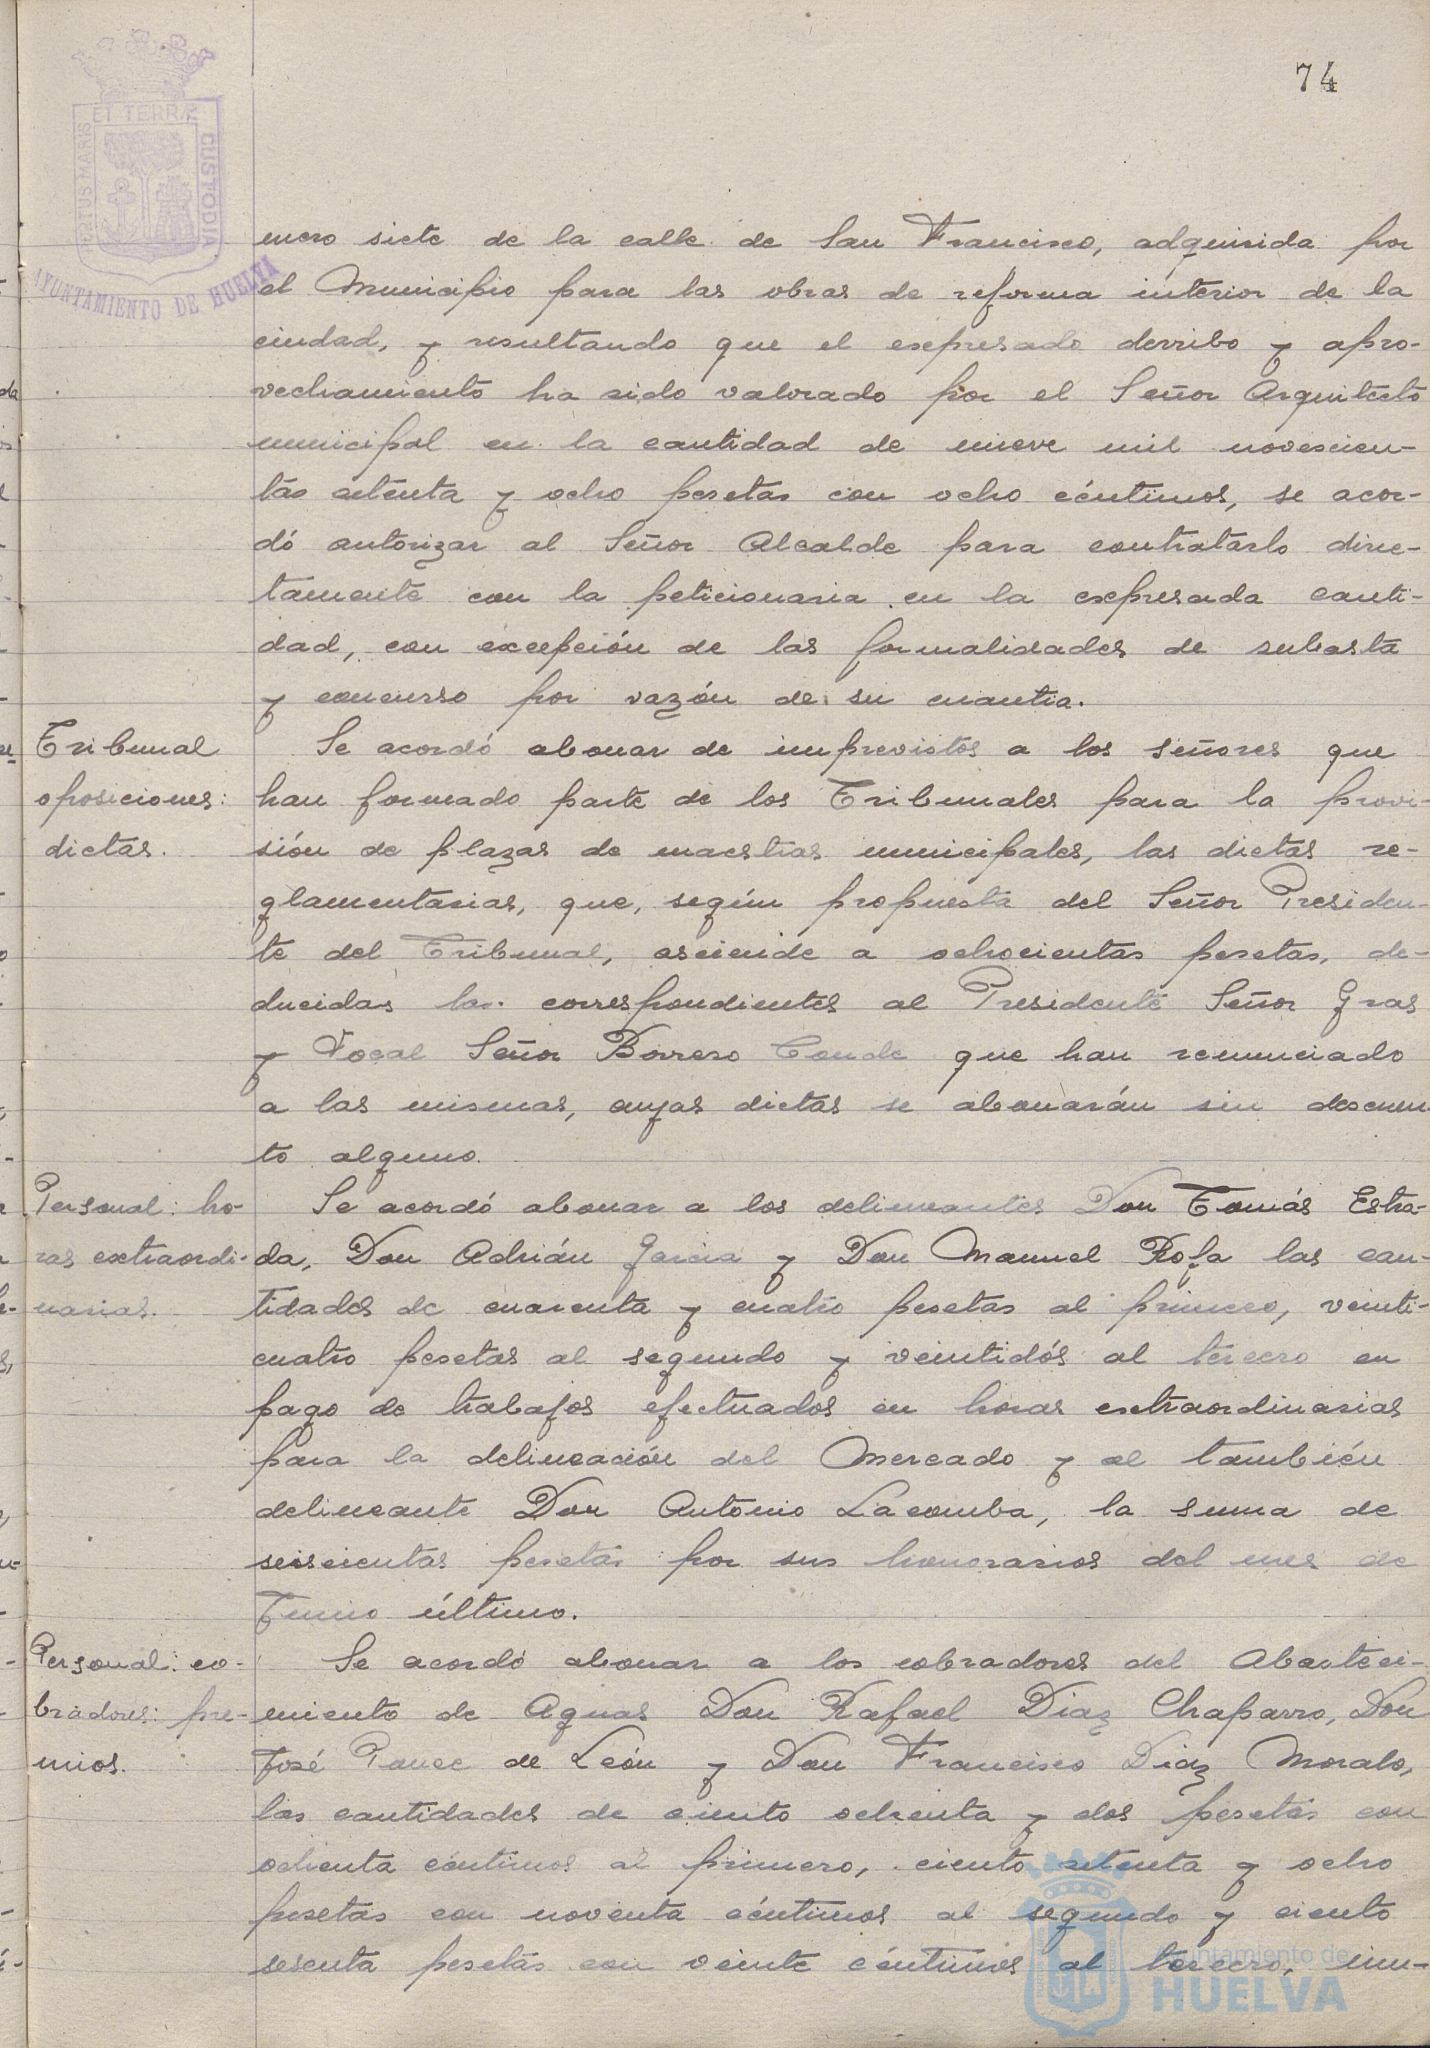 74
PORTUS MARIS ET TERRÆ CUSTODIA
AYUNTAMIENTO DE HUELVA
mero siete de la calle de San Francisco, adquirida por
el Municipio para las obras de reforma interior de la
ciudad, y resultando que el expresado derribo y apro-
vechamiento ha sido valorado por el Señor Arquitecto
municipal en la cantidad de nueve mil novecien-
tas setenta y ocho pesetas con ocho céntimos, se acor-
dó autorizar al Señor Alcalde para contratarlo direc-
tamente con la peticionaria en la expresada canti-
dad, con excepción de las formalidades de subasta
y concurso por razón de su cuantia.
Tribunal
oposiciones:
dietas.
Se acordó abonar de imprevistos a los señores que
han formado parte de los Tribunales para la provi-
sión de plazas de maestras municipales, las dietas re-
glamentarias, que, según propuesta del Señor Presiden-
te del Tribunal, asciende a ochocientas pesetas, de-
ducidas las correspondientes al Presidente Señor Gras
y Vocal Señor Borrero Conde que han renunciado
a las mismas, cuyas dietas se abonarán sin descuen
to alguno.
Personal: ho-
ras extraordi-
narias.
Se acordó abonar a los delineantes Don Tomás Estra-
da, Don Adrián Garcia y Don Manuel Rofa las can-
tidades de cuarenta y cuatro pesetas al primero, veinti-
cuatro pesetas al segundo y veintidós al tercero en
pago de trabajos efectuados en horas extraordinarias
para la delineación del Mercado y al también
delineante Don Antonio Lacomba, la suma de
seiscientas pesetas por sus honorarios del mes de
Junio último.
Personal: co-
bradores: pre-
mios.
Se acordó abonar a los cobradores del Abasteci-
miento de Aguas Don Rafael Diaz Chaparro, Don
José Ponce de León y Don Francisco Diaz Morato,
las cantidades de ciento ochenta y dos pesetas con
ochenta céntimos al primero, ciento setenta y ocho
pesetas con noventa céntimos al segundo y ciento
sesenta pesetas con veinte céntimos al tercero, im-
Ayuntamiento de
HUELVA